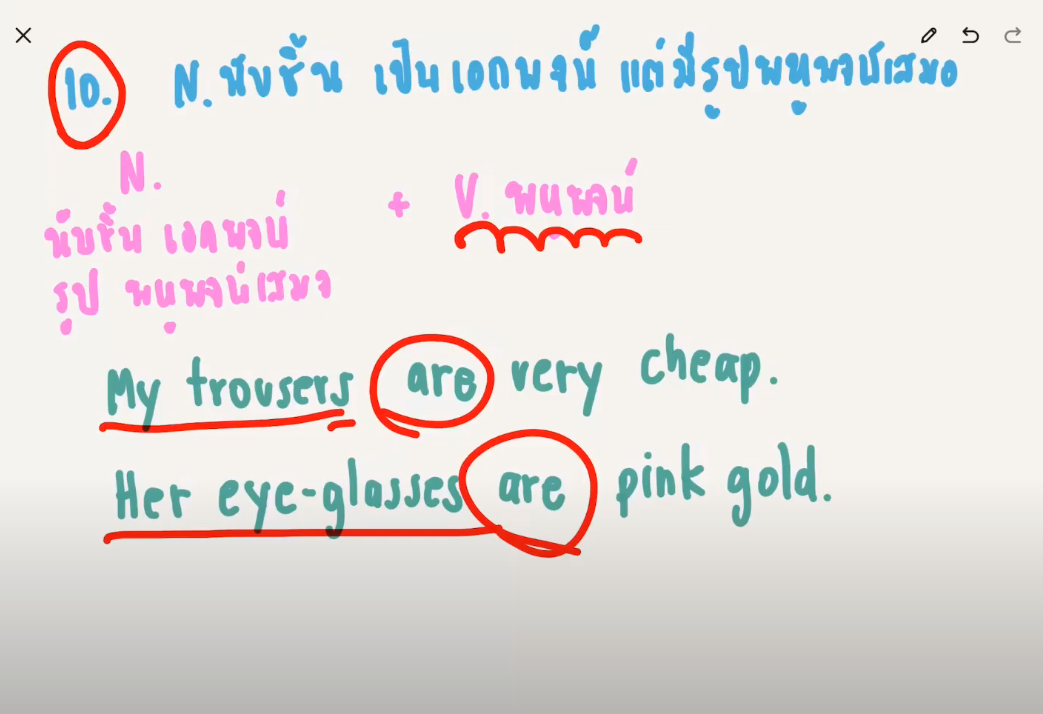 10. N. นับชิ้น เป็นเอกพจน์ แต่มีรูปพหูพจน์เสมอ
N.
นับชิ้น เอกพจน์ + V. พหูพจน์
รูป พหูพจน์เสมอ
My trousers are very cheap.
Her eye-glasses are pink gold.